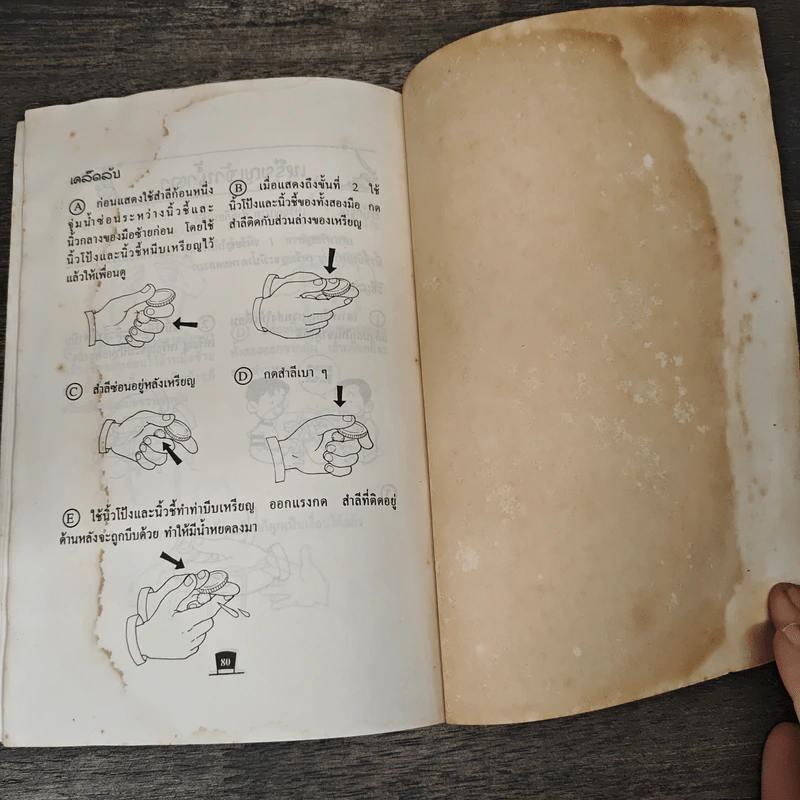 เคล็ดลับ
A ก่อนแสดงใช้สำลีก้อนหนึ่ง
ชุ่มน้ำซ่อนระหว่างนิ้วชี้และ
นิ้วกลางของมือซ้ายก่อน โดยใช้
นิ้วโป้งและนิ้วชี้หนีบเหรียญไว้
แล้วให้เพื่อนดู
B เมื่อแสดงถึงขั้นที่ 2 ใช้
นิ้วโป้งและนิ้วชี้ของทั้งสองมือ กด
สำลีติดกับส่วนล่างของเหรียญ
C สำลีซ่อนอยู่หลังเหรียญ
D กดสำลีเบา ๆ
E ใช้นิ้วโป้งและนิ้วชี้ทำท่าบีบเหรียญ ออกแรงกด สำลีที่ติดอยู่
ด้านหลังจะถูกบีบด้วย ทำให้มีน้ำหยดลงมา
80